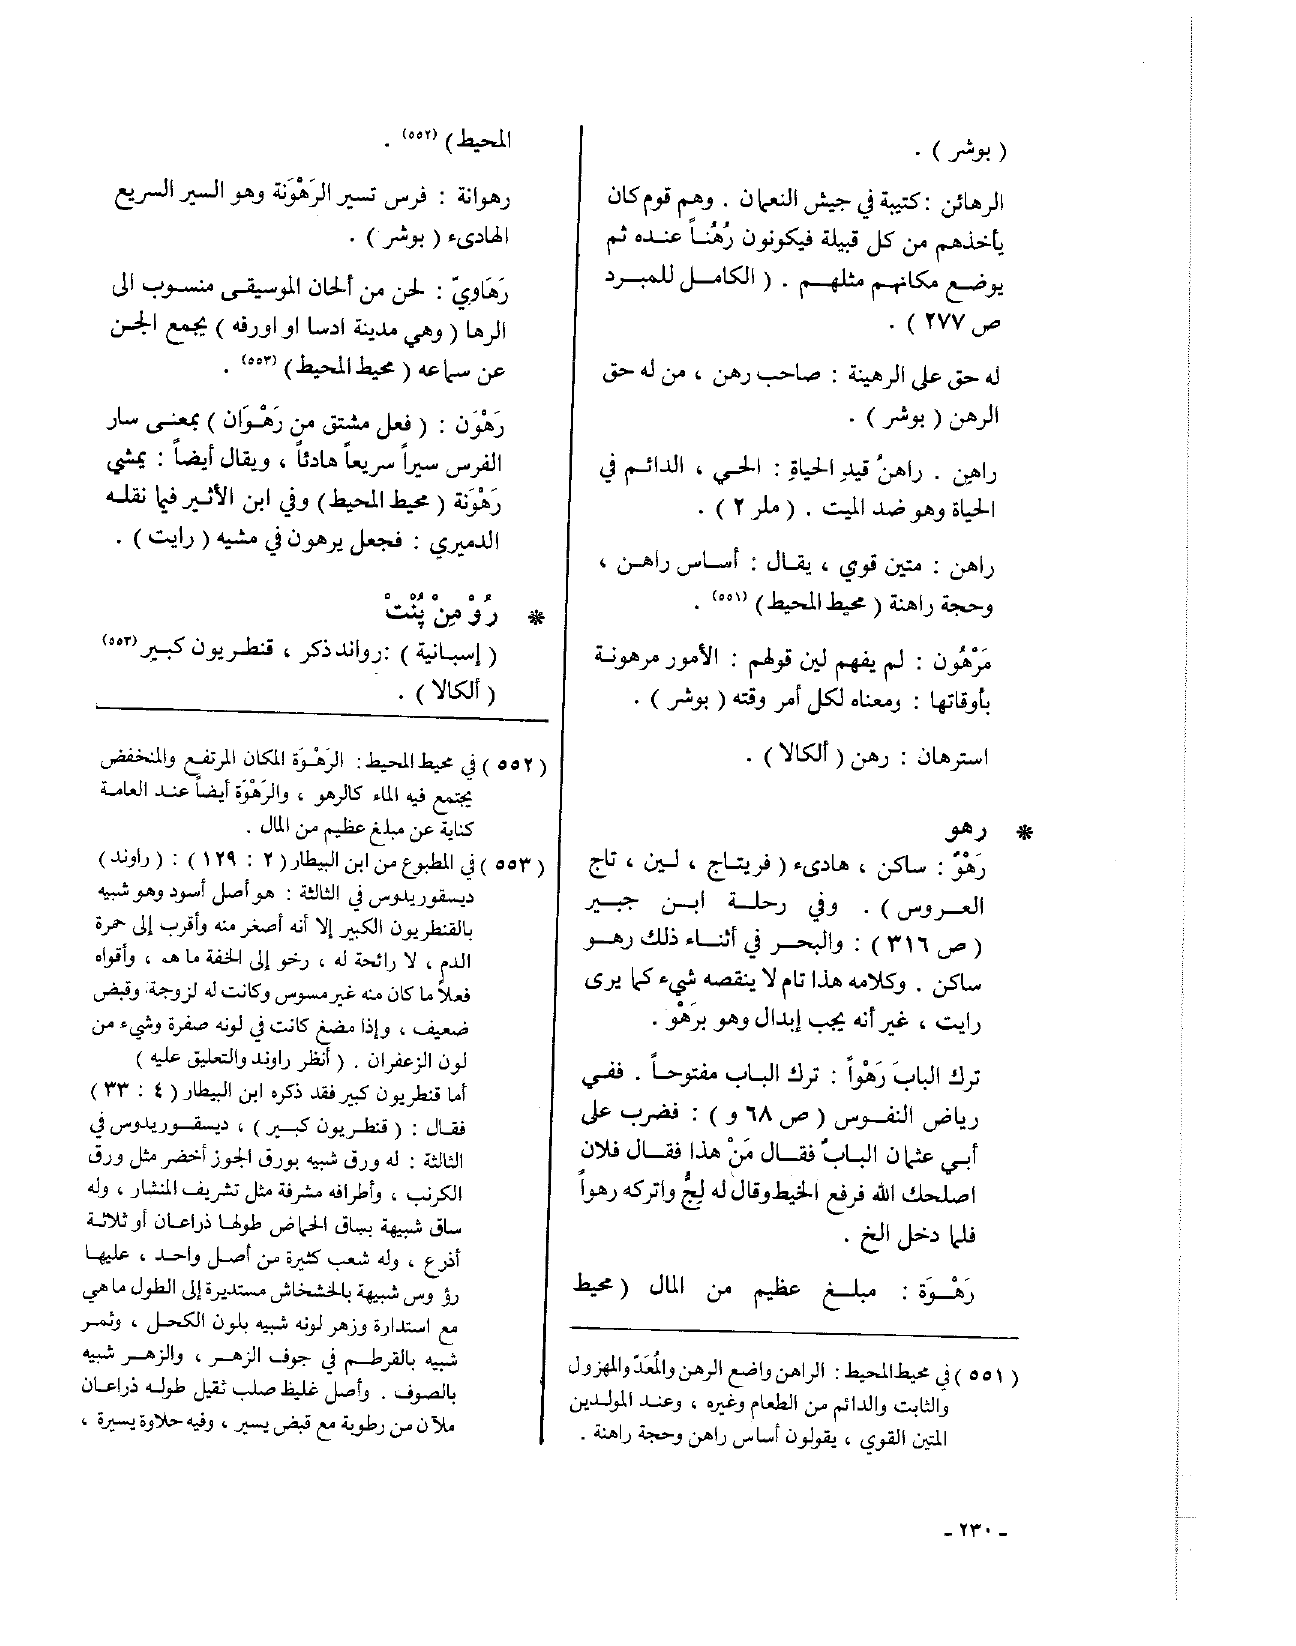 ( بوشر ) .
الرهائن : كتيبة في جيش النعمان . وهم قوم كان
يأخذهم من كل قبيلة فيكونون رُهُناً عنده ثم
يوضع مكانهم مثلهم . ( الكامل للمبرد
ص ٢٧٧ ) .
له حق على الرهينة : صاحب رهن ، من له حق
الرهن ( بوشر ) .
راهِن . راهنُ قيدِ الحياةِ : الحي ، الدائم في
الحياة وهو ضد الميت . ( ملر ٢ ) .
راهن : متين قوي ، يقال : أساس راهن ،
وحجة راهنة ( محيط المحيط ) (٥٥١) .
مَرْهُون : لم يفهم لين قولهم : الأمور مرهونة
بأوقاتها : ومعناه لكل أمر وقته ( بوشر ) .
استرهان : رهن ( ألكالا ) .
* رهو
رَهْوٌ : ساكن ، هادىء ( فريتاج ، لين ، تاج
العروس ) . وفي رحلة ابن جبير
( ص ٣١٦ ) : والبحر في أثناء ذلك رهو
ساكن . وكلامه هذا تام لا ينقصه شيء كما يرى
رايت ، غير أنه يجب إبدال وهو برَهْو .
ترك البابَ رَهْواً : ترك الباب مفتوحاً . ففي
رياض النفوس ( ص ٦٨ و ) : فضرب على
أبي عثمان البابٌ فقال مَنْ هذا فقال فلان
اصلحك الله فرفع الخيط وقال له لِجُ واتركه رهواً
فلما دخل الخ .
رَهْوَة : مبلغ عظيم من المال ( محيط
( ٥٥١ ) في محيط المحيط : الراهن واضع الرهن والمُعَدّ والمهزول
والثابت والدائم من الطعام وغيره ، وعند المولدين
المتين القوي ، يقولون أساس راهن وحجة راهنة .
المحيط ) (٥٥٢) .
رهوانة : فرس تسير الرَهْوَنة وهو السير السريع
الهادىء ( بوشر ) .
رَهَاوِيّ : لحن من ألحان الموسيقى منسوب الى
الرها ( وهي مدينة ادسا او اورفه ) يجمع الجن
عن سماعه ( محيط المحيط ) (٥٥٣) .
رَهْوَن : ( فعل مشتق من رَهْوَان ) بمعنى سار
الفرس سيراً سريعاً هادئاً ، ويقال أيضاً : يمشي
رَهْوَنة ( محيط المحيط ) وفي ابن الأثير فيما نقله
الدميري : فجعل يرهون في مشيه ( رايت ) .
* رُو مِنْ پُنْت
( إسبانية ) : رواند ذكر ، قنطريون كبير (٥٥٣)
( ألكالا ) .
( ٥٥٢ ) في محيط المحيط : الرَهْوَة المكان المرتفع والمنخفض
يجتمع فيه الماء كالرهو ، والرَهْوَة أيضاً عند العامة
كناية عن مبلغ عظيم من المال .
( ٥٥٣ ) في المطبوع من ابن البيطار ( ٢ : ١٢٩ ) : ( راوند )
ديسقوريدوس في الثالثة : هو أصل أسود وهو شبيه
بالقنطريون الكبير إلا أنه أصغر منه وأقرب إلى حمرة
الدم ، لا رائحة له ، رخو إلى الخفة ما هو ، وأقواه
فعلاً ما كان منه غير مسوس وكانت له لزوجة وقبض
ضعيف ، وإذا مضغ كانت في لونه صفرة وشيء من
لون الزعفران . ( أنظر راوند والتعليق عليه )
أما قنطريون كبير فقد ذكره ابن البيطار ( ٤ : ٣٣ )
فقال : ( قنطريون كبير ) ، ديسقوريدوس في
الثالثة : له ورق شبيه بورق الجوز أخضر مثل ورق
الكرنب ، وأطرافه مشرفة مثل تشريف المنشار ، وله
ساق شبيهة بساق الحماض طولها ذراعان أو ثلاثة
أذرع ، وله شعب كثيرة من أصل واحد ، عليها
رؤوس شبيهة بالخشخاش مستديرة إلى الطول ما هي
مع استدارة وزهر لونه شبيه بلون الكحل ، وثمر
شبيه بالقرطم في جوف الزهر ، والزهر شبيه
بالصوف . وأصل غليظ صلب ثقيل طوله ذراعان
ملآن من رطوبة مع قبض يسير ، وفيه حلاوة يسيرة ،
- ٢٣٠ -